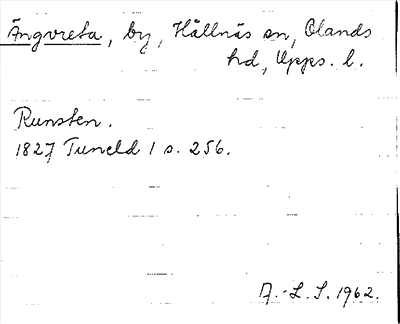 Ängvreta, by, Hållnäs sn, Olands
hd, Upps. l.
Runsten.
1827 Tuneld 1 s. 256.
A.-L. S. 1962.